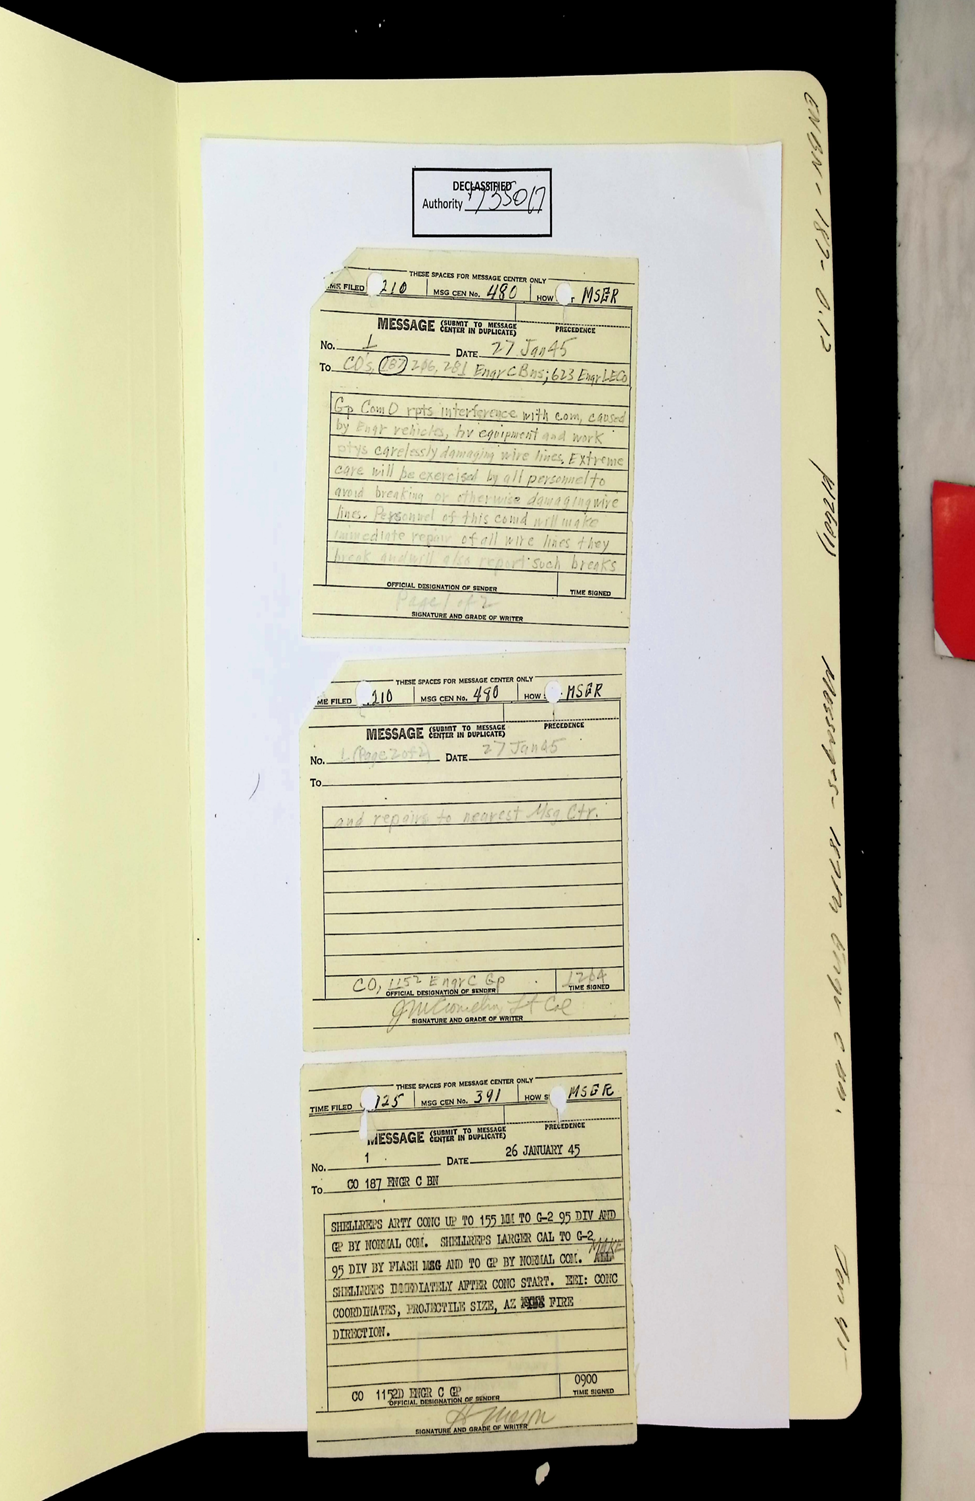 DECLASSIFIED
Authority 735017
THESE SPACES FOR MESSAGE CENTER ONLY
ME FILED 210 MSG CEN No. 480 HOW MSGR
MESSAGE (SUBMIT TO MESSAGE CENTER IN DUPLICATE) PRECEDENCE
No. 1 DATE 27 Jan 45
To CO's, 187, 206, 281 Engr C Bns; 623 Engr LE Co
Gp Com O rpts interference with com, caused
by Engr vehicles, hv equipment and work
ptys carelessly damaging wire lines. Extreme
care will be exercised by all personnel to
avoid breaking or otherwise damaging wire
lines. Personnel of this comd will make
immediate repair of all wire lines they
break and will also report such breaks
OFFICIAL DESIGNATION OF SENDER TIME SIGNED
Page 1 of 2
SIGNATURE AND GRADE OF WRITER
THESE SPACES FOR MESSAGE CENTER ONLY
ME FILED 210 MSG CEN No. 480 HOW MSGR
MESSAGE (SUBMIT TO MESSAGE CENTER IN DUPLICATE) PRECEDENCE
No. 1 (Page 2 of 2) DATE 27 Jan 45
To
and repairs to nearest Msg Ctr.
CO, 1152 Engr C Gp 1204
OFFICIAL DESIGNATION OF SENDER TIME SIGNED
Lt Col
SIGNATURE AND GRADE OF WRITER
THESE SPACES FOR MESSAGE CENTER ONLY
TIME FILED 925 MSG CEN No. 391 HOW S MSGR
MESSAGE (SUBMIT TO MESSAGE CENTER IN DUPLICATE) PRECEDENCE
No. 1 DATE 26 JANUARY 45
To CO 187 ENGR C BN
SHELLREPS ARTY CONC UP TO 155 MM TO G-2 95 DIV AND
GP BY NORMAL COM. SHELLREPS LARGER CAL TO G-2
95 DIV BY FLASH MSG AND TO GP BY NORMAL COM. MAKE
SHELLREPS IMMEDIATELY AFTER CONC START. EEI: CONC
COORDINATES, PROJECTILE SIZE, AZ FIRE
DIRECTION.
CO 1152D ENGR C GP 0900
OFFICIAL DESIGNATION OF SENDER TIME SIGNED
SIGNATURE AND GRADE OF WRITER
ENBN-187-0.13 Messages- 187th Engr C Bn.